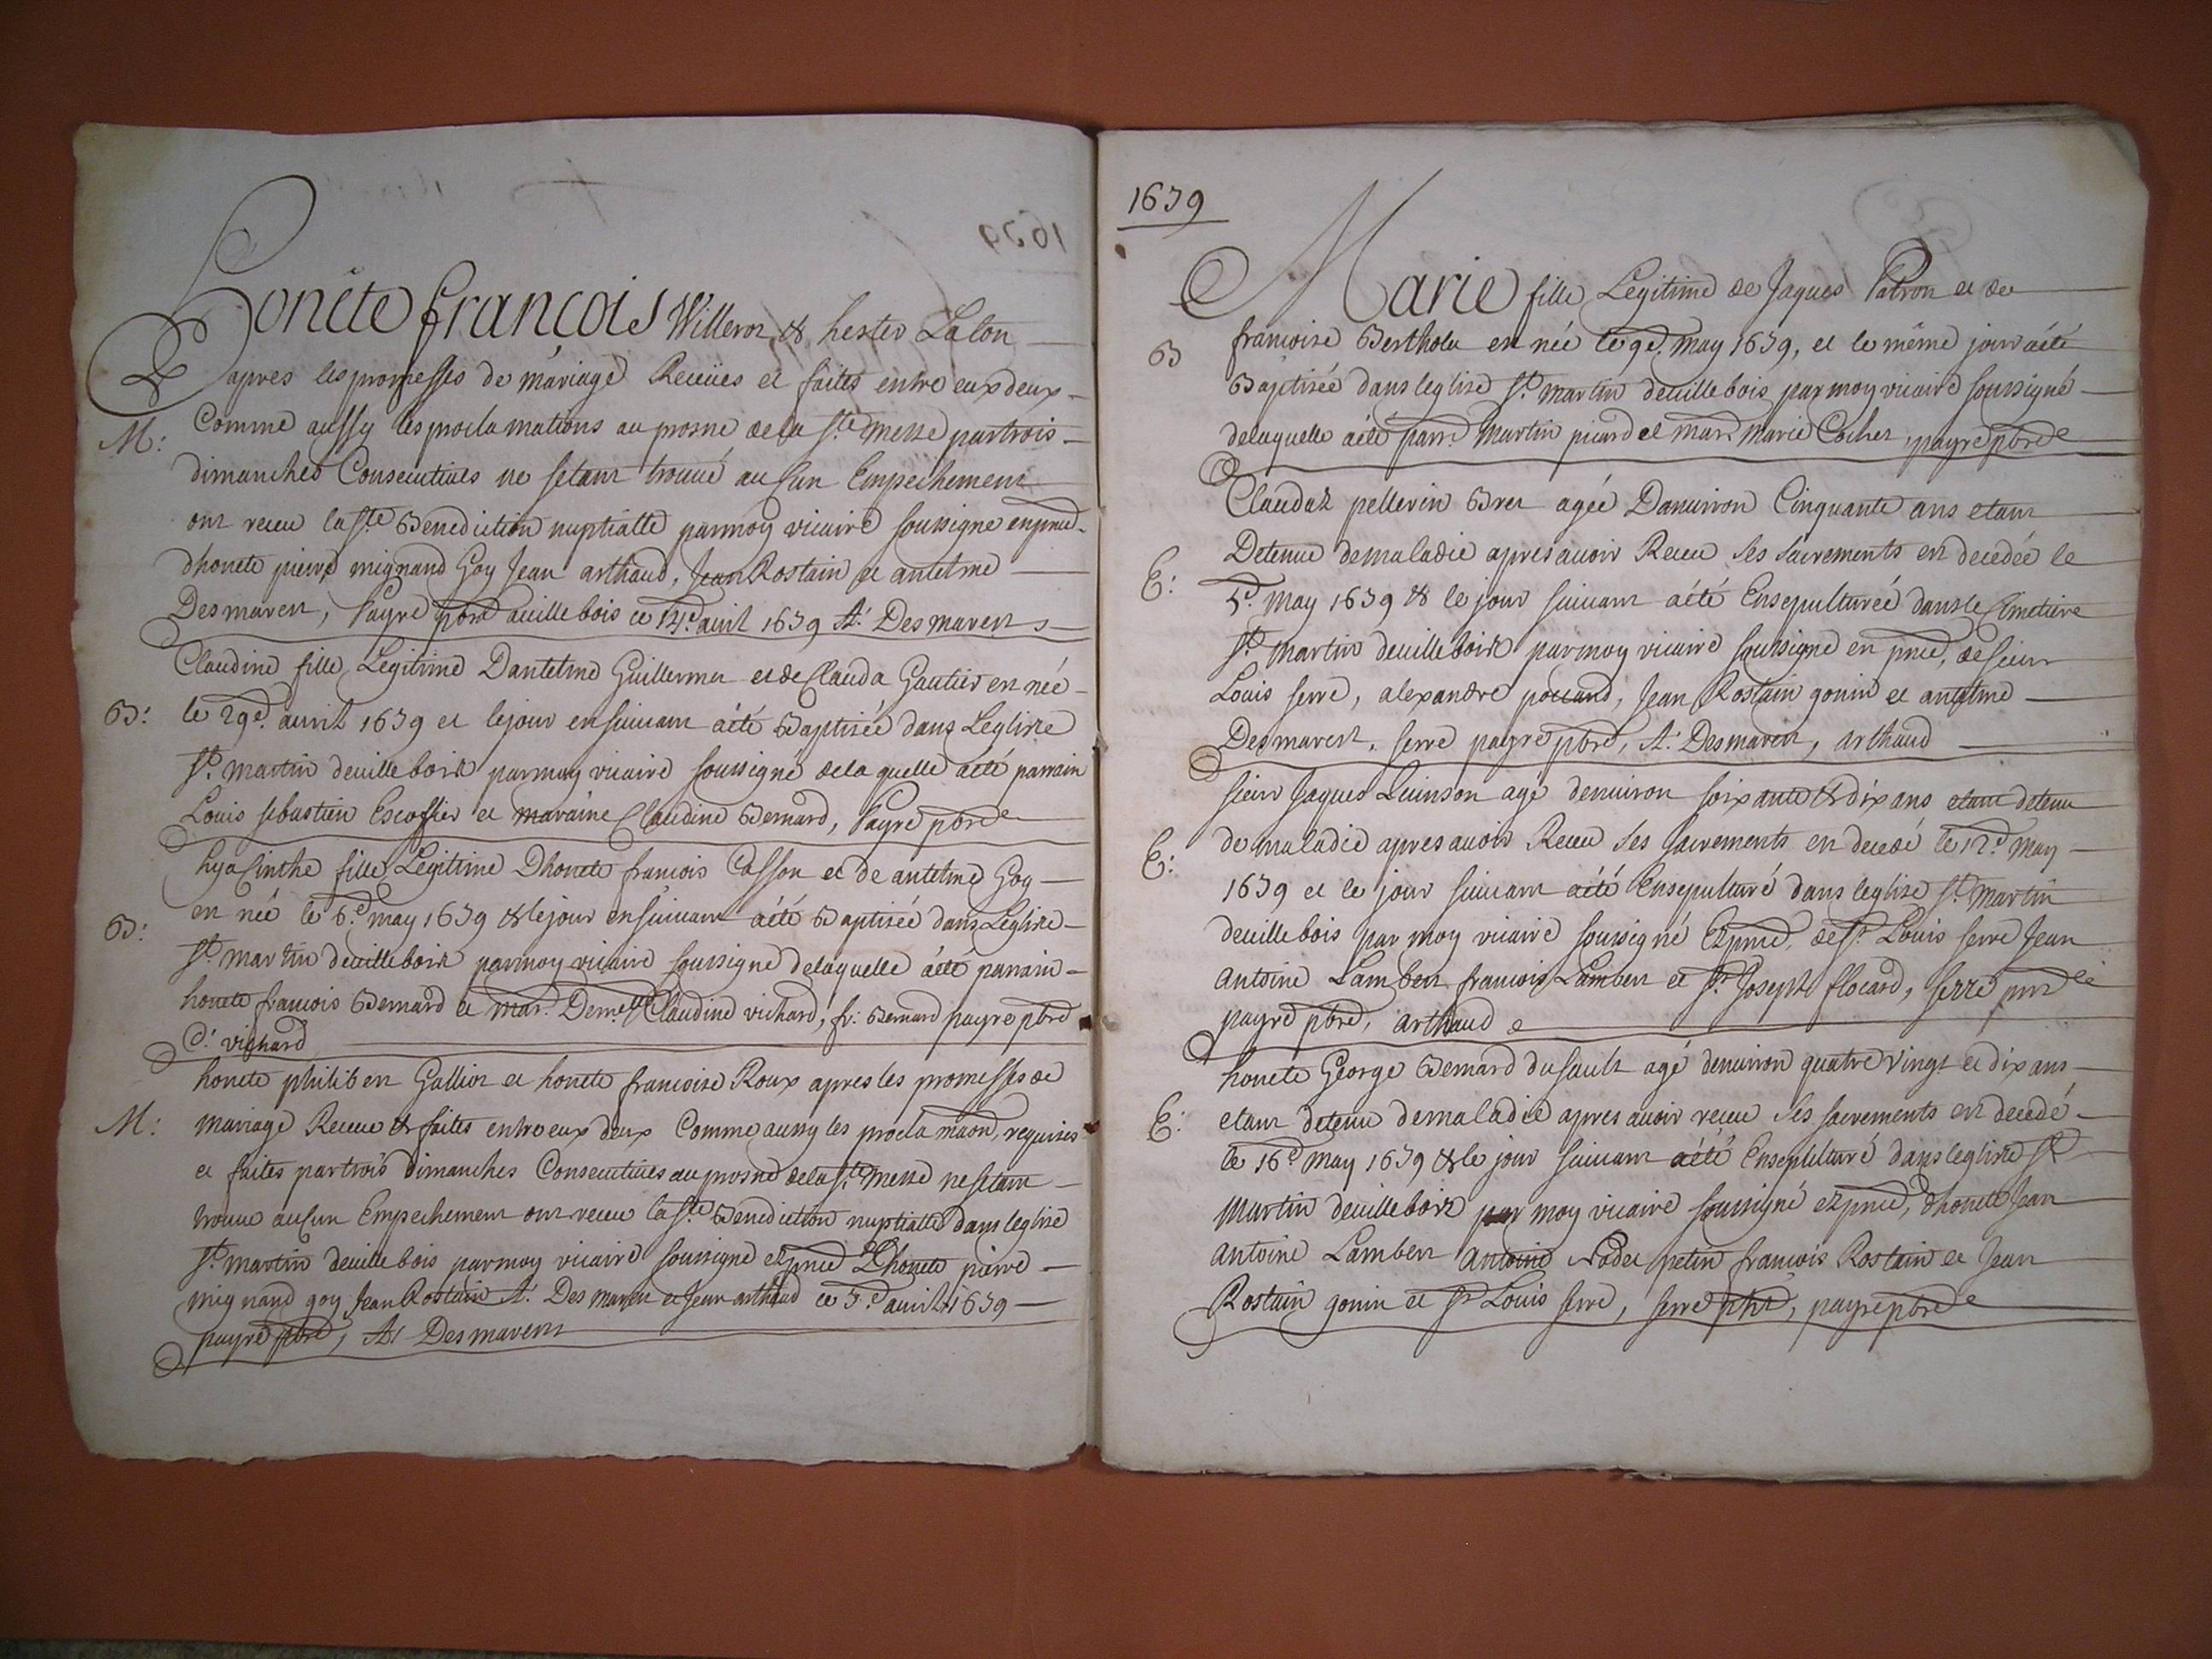 Honête françois Willerot & hester Lalon
apres les promesses de mariage Receües et faites entre eux deux
M: Comme aussy les proclamations au prosne de la Ste Messe par trois
dimanches Consecutiues ne setant trouué aucun Empechement
ont receu la Ste Benediction nuptialle par moy vicaire soussigne en pnce
dhonete pierre mignand Goy Jean arthaud, Jean Rostain et antelme
Desmarest, Payre pbre a uillebois ce avril 1639 A. Desmarest
Claudine fille Legitime Dantelme Guillermet et de Clauda Gautier est née
B: le 29e. auvril 1639 et le jour ensuiuant a été Baptisée dans Leglise
St. Martin deuillebois par moy vicaire soussigné de la quelle a été parrain
Louis sebastien Escoffier et maraine Claudine Bernard, Payre pbre
hyacinthe fille Legitime Dhonete francois Casson et de antelme Goy
est née le 6.e may 1639 & le jour ensuiuant a été Baptisée dans Leglise
B: St. Martin deuillebois par moy vicaire soussigne de laquelle a été parrain
honete francois Bernard et Mar. Demelle Claudine vichard, fr. Bernard payre pbre
C. vichard
honete philibert Galliot et honete francoise Roux apres les promesses de
M: Mariage Receue & faites entre eux deux Comme aussy les proclamaon. requises
et faites par trois Dimanches Consecutiues au prosne de la Ste Messe ne setant
trouue aucun Empechement ont receu la Ste Benediction nuptialle dans leglise
St. Martin deuillebois par moy vicaire soussigne et pnce Dhonete pierre
mignand goy Jean Rostain A. Desmarest et Jean arthaud ce 3.e auvril 1639
payre pbre, A. Desmarest
1639
Marie fille Legitime de Jaques Patron et de
B francoise Bertholet est née le 9e. May 1639, et le même jour a été
Baptisée dans leglise St. Martin deuillebois par moy vicaire soussigné
de laquelle a été parr. Martin picard et mar. Marie Cochet, payre pbre
Claudaz pellerin Bret agée Danuiron Cinquante ans etant
Detenue de maladie apres auoir Receu Ses Sacrements est decedée le
E: May 1639 & le jour suiuant a été Ensepulturée dans le Cimetiere
St. Martin deuillebois par moy vicaire soussigne en pnce, de sieur
Louis serre, alexandre poccand, Jean Rostain gonin et antelme
Desmarest, serre payre pbre, A. Desmarest, arthaud
sieur Jaques Luinson agé denuiron soixante & dix ans etant detenu
E: de maladie apres auoir Receu Ses Sacrements est decedé le 12.e May
1639 et le jour suiuant a été Ensepulturé dans leglise St. Martin
deuillebois par moy vicaire soussigné Et pnce, de Sr. Louis serre Jean
antoine Lambert francois Lambert et Sr. Joseph flocard, serre
payre pbre, arthaud
honete George Bernard du sault agé denuiron quatre vingt et dix ans
E: etant detenu de maladie apres auoir receu Ses sacrements est decedé
le 16.e May 1639 & le jour suiuant a été Ensepulturé dans leglise St
Martin deuillebois par moy vicaire soussigné et pnce, dhonete Jean
antoine Lambert antoine Nodet petin francois Rostain et Jean
Rostain gonin et Sr Louis serre, serre pbre, payre pbre